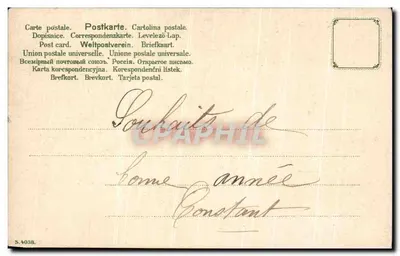 Carte postale. Postkarte. Cartolina postale.
Dopisnice. Correspondenzkarte. Levelező-Lap.
Post card. Weltpostverein. Briefkaart.
Union postale universelle. Unione postale universale.
Всемірный почтовый союзъ. Россія. Открытое письмо.
Karta korespondencyjna. Korespondenční lístek.
Brefkort. Brevkort. Tarjeta postal.
Souhaits de
CPAPHIL
bonne année
Constant
S. 4038.